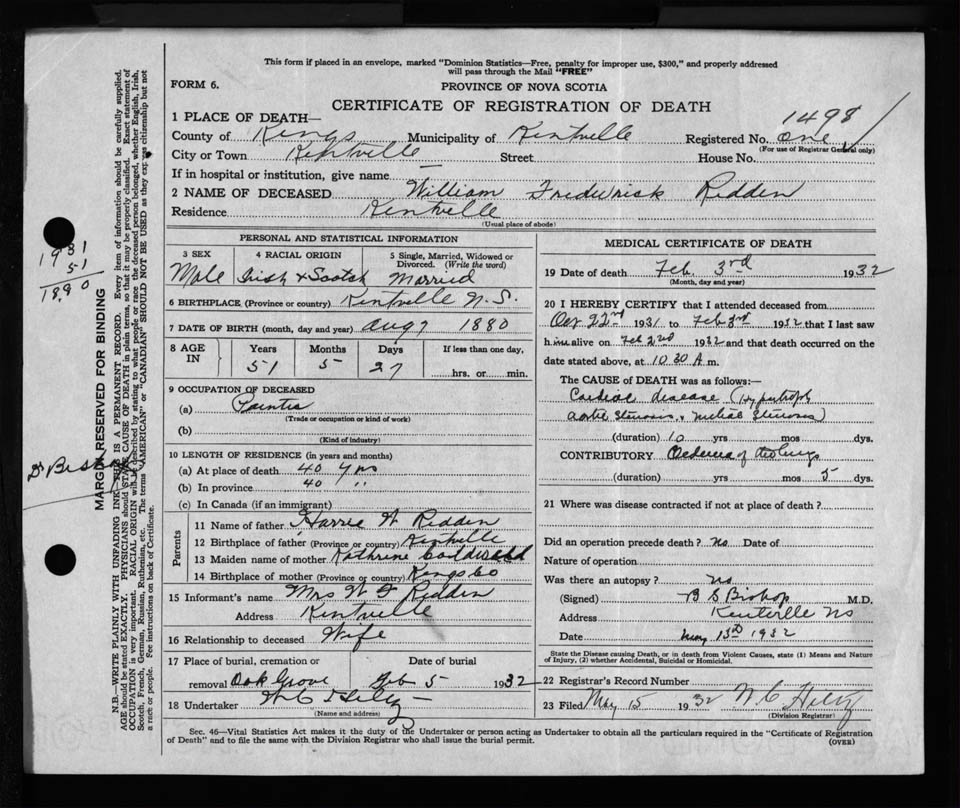 This form if placed in an envelope, marked "Dominion Statistics—Free, penalty for improper use, $300," and properly addressed
will pass through the Mail "FREE"
FORM 6.
PROVINCE OF NOVA SCOTIA
CERTIFICATE OF REGISTRATION OF DEATH
1498
1 PLACE OF DEATH—
County of Kings Municipality of Kentville Registered No. one
(For use of Registrar General only)
City or Town Kentville Street House No.
If in hospital or institution, give name —
2 NAME OF DECEASED William Frederick Redden
Residence Kentville
(Usual place of abode)
PERSONAL AND STATISTICAL INFORMATION
3 SEX 4 RACIAL ORIGIN 5 Single, Married, Widowed or
Divorced. (Write the word)
Male Irish & Scotch Married
6 BIRTHPLACE (Province or country) Kentville N.S.
7 DATE OF BIRTH (month, day and year) Aug 7 1880
8 AGE IN Years Months Days If less than one day,
51 5 27 hrs. or min.
9 OCCUPATION OF DECEASED
(a) Painter
(Trade or occupation or kind of work)
(b)
(Kind of industry)
10 LENGTH OF RESIDENCE (in years and months)
(a) At place of death 40 yrs
(b) In province 40 "
(c) In Canada (if an immigrant)
Parents
11 Name of father Harris W Redden
12 Birthplace of father (Province or country) Kentville
13 Maiden name of mother Kathrine
14 Birthplace of mother (Province or country) Kings Co
15 Informant's name Mrs W F Redden
Address Kentville
16 Relationship to deceased Wife
17 Place of burial, cremation or Date of burial
removal Oak Grove Feb 5 1932
18 Undertaker W C Hiltz
(Name and address)
MEDICAL CERTIFICATE OF DEATH
19 Date of death Feb. 3rd 1932
(Month, day and year)
20 I HEREBY CERTIFY that I attended deceased from
22nd 1931 to Feb 3rd 1932 that I last saw
him alive on Feb 2nd 1932 and that death occurred on the
date stated above, at 10 30 A m.
The CAUSE of DEATH was as follows:—
Cardiac disease (Hypertrophy
aortic stenosis & mitral stenosis)
(duration) 10 yrs mos dys.
CONTRIBUTORY Oedema of the lungs
(duration) yrs mos 5 dys.
21 Where was disease contracted if not at place of death?
Did an operation precede death? no Date of
Nature of operation
Was there an autopsy? no
(Signed) B S Bishop M.D.
Address Kentville NS
Date May 13th 1932
State the Disease causing Death, or in death from Violent Causes, state (1) Means and
Nature of Injury, (2) whether Accidental, Suicidal or Homicidal.
22 Registrar's Record Number
23 Filed May 15 1932 W C Hiltz
(Division Registrar)
Sec. 46—Vital Statistics Act makes it the duty of the Undertaker or person acting as Undertaker to obtain all the particulars required in the "Certificate of Registration
of Death" and to file the same with the Division Registrar who shall issue the burial permit.
(OVER)
1931
51
1880
Dr Bishop
MARGIN RESERVED FOR BINDING
N.B.—WRITE PLAINLY WITH UNFADING INK—THIS IS A PERMANENT RECORD. Every item of information should be carefully supplied.
AGE should be stated EXACTLY. PHYSICIANS should STATE CAUSE OF DEATH in plain terms, so that it may be properly classified. Exact statement of
OCCUPATION is very important. RACIAL ORIGIN will be described by stating to what people or race the deceased person belonged, whether English, Irish,
Scotch, French, German, Russian, Ruthenian, etc. The terms "AMERICAN" or "CANADIAN" SHOULD NOT BE USED as they express citizenship but not
a race or people. See instructions on back of Certificate.